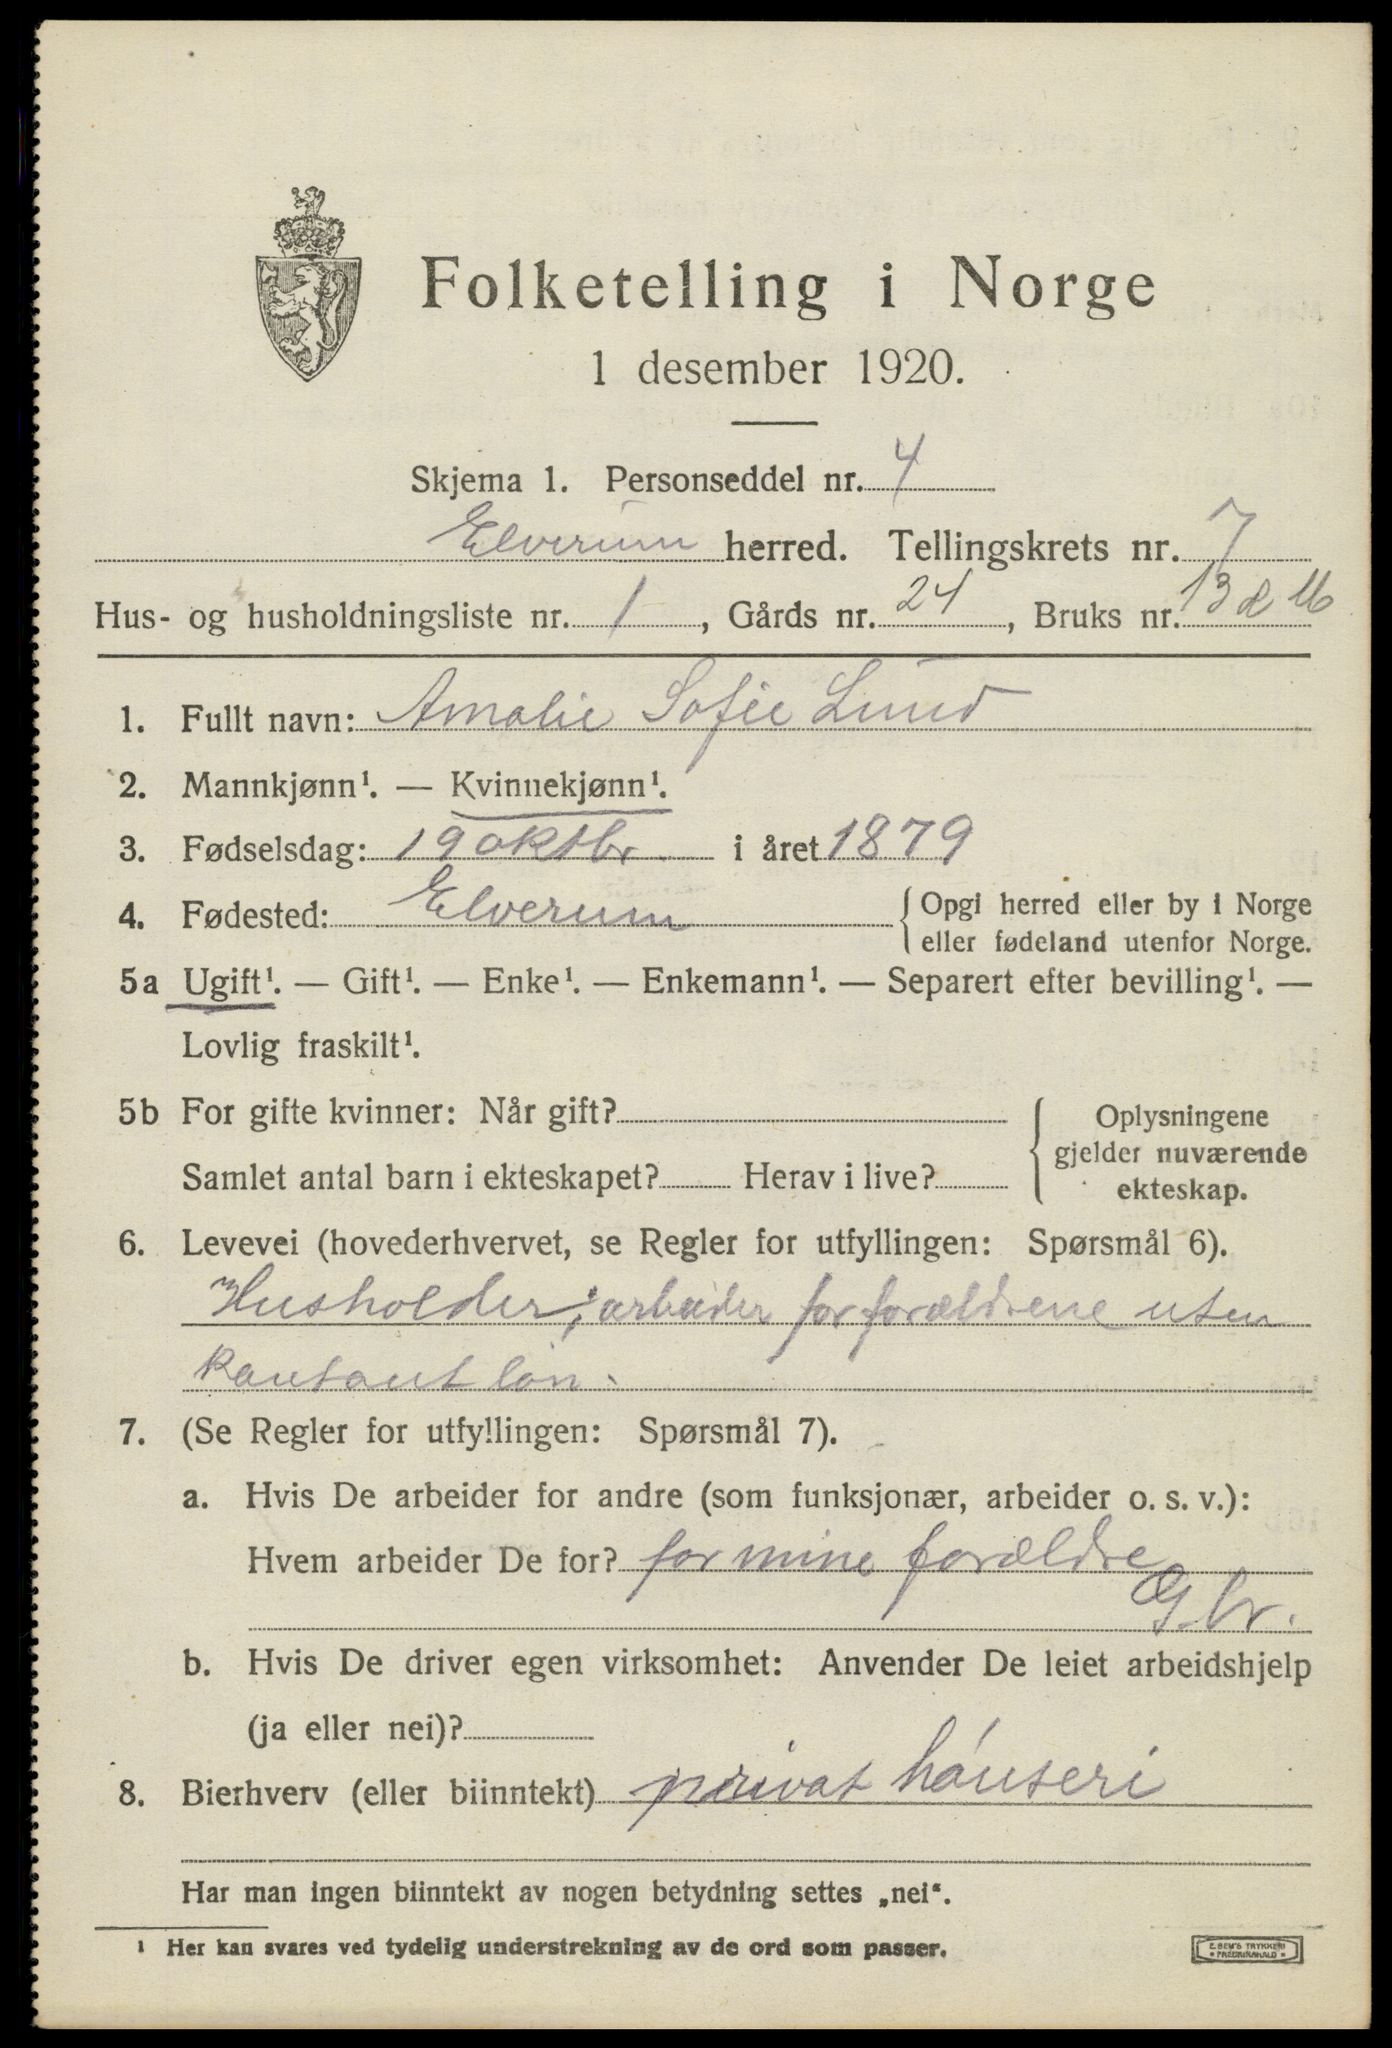 Folketelling i Norge
1 desember 1920.
Skjema 1. Personseddel nr. 4
Elverum herred. Tellingskrets nr. 7
Hus- og husholdningsliste nr. 1, Gårds nr. 24, Bruks nr. 13 & 16
1. Fullt navn: Amalie Sofie Lund
2. Mannkjønn¹. — Kvinnekjønn¹.
3. Fødselsdag: 19 oktbr. i året 1879
4. Fødested: Elverum { Opgi herred eller by i Norge
eller fødeland utenfor Norge.
5a Ugift¹. — Gift¹. — Enke¹. — Enkemann¹. — Separert efter bevilling¹. —
Lovlig fraskilt¹.
5b For gifte kvinner: Når gift?
Samlet antal barn i ekteskapet? Herav i live?
{ Oplysningene
gjelder nuværende
ekteskap.
6. Levevei (hovederhvervet, se Regler for utfyllingen: Spørsmål 6).
Husholder; arbeider for forældrene uten
kontant løn.
7. (Se Regler for utfyllingen: Spørsmål 7).
a. Hvis De arbeider for andre (som funksjonær, arbeider o. s. v.):
Hvem arbeider De for? for mine forældre
G.br.
b. Hvis De driver egen virksomhet: Anvender De leiet arbeidshjelp
(ja eller nei)?
8. Bierhverv (eller biinntekt) privat hønseri
Har man ingen biinntekt av nogen betydning settes „nei“.
¹ Her kan svares ved tydelig understrekning av de ord som passer.
E. SEM'S TRYKKERI
FREDRIKSHALD